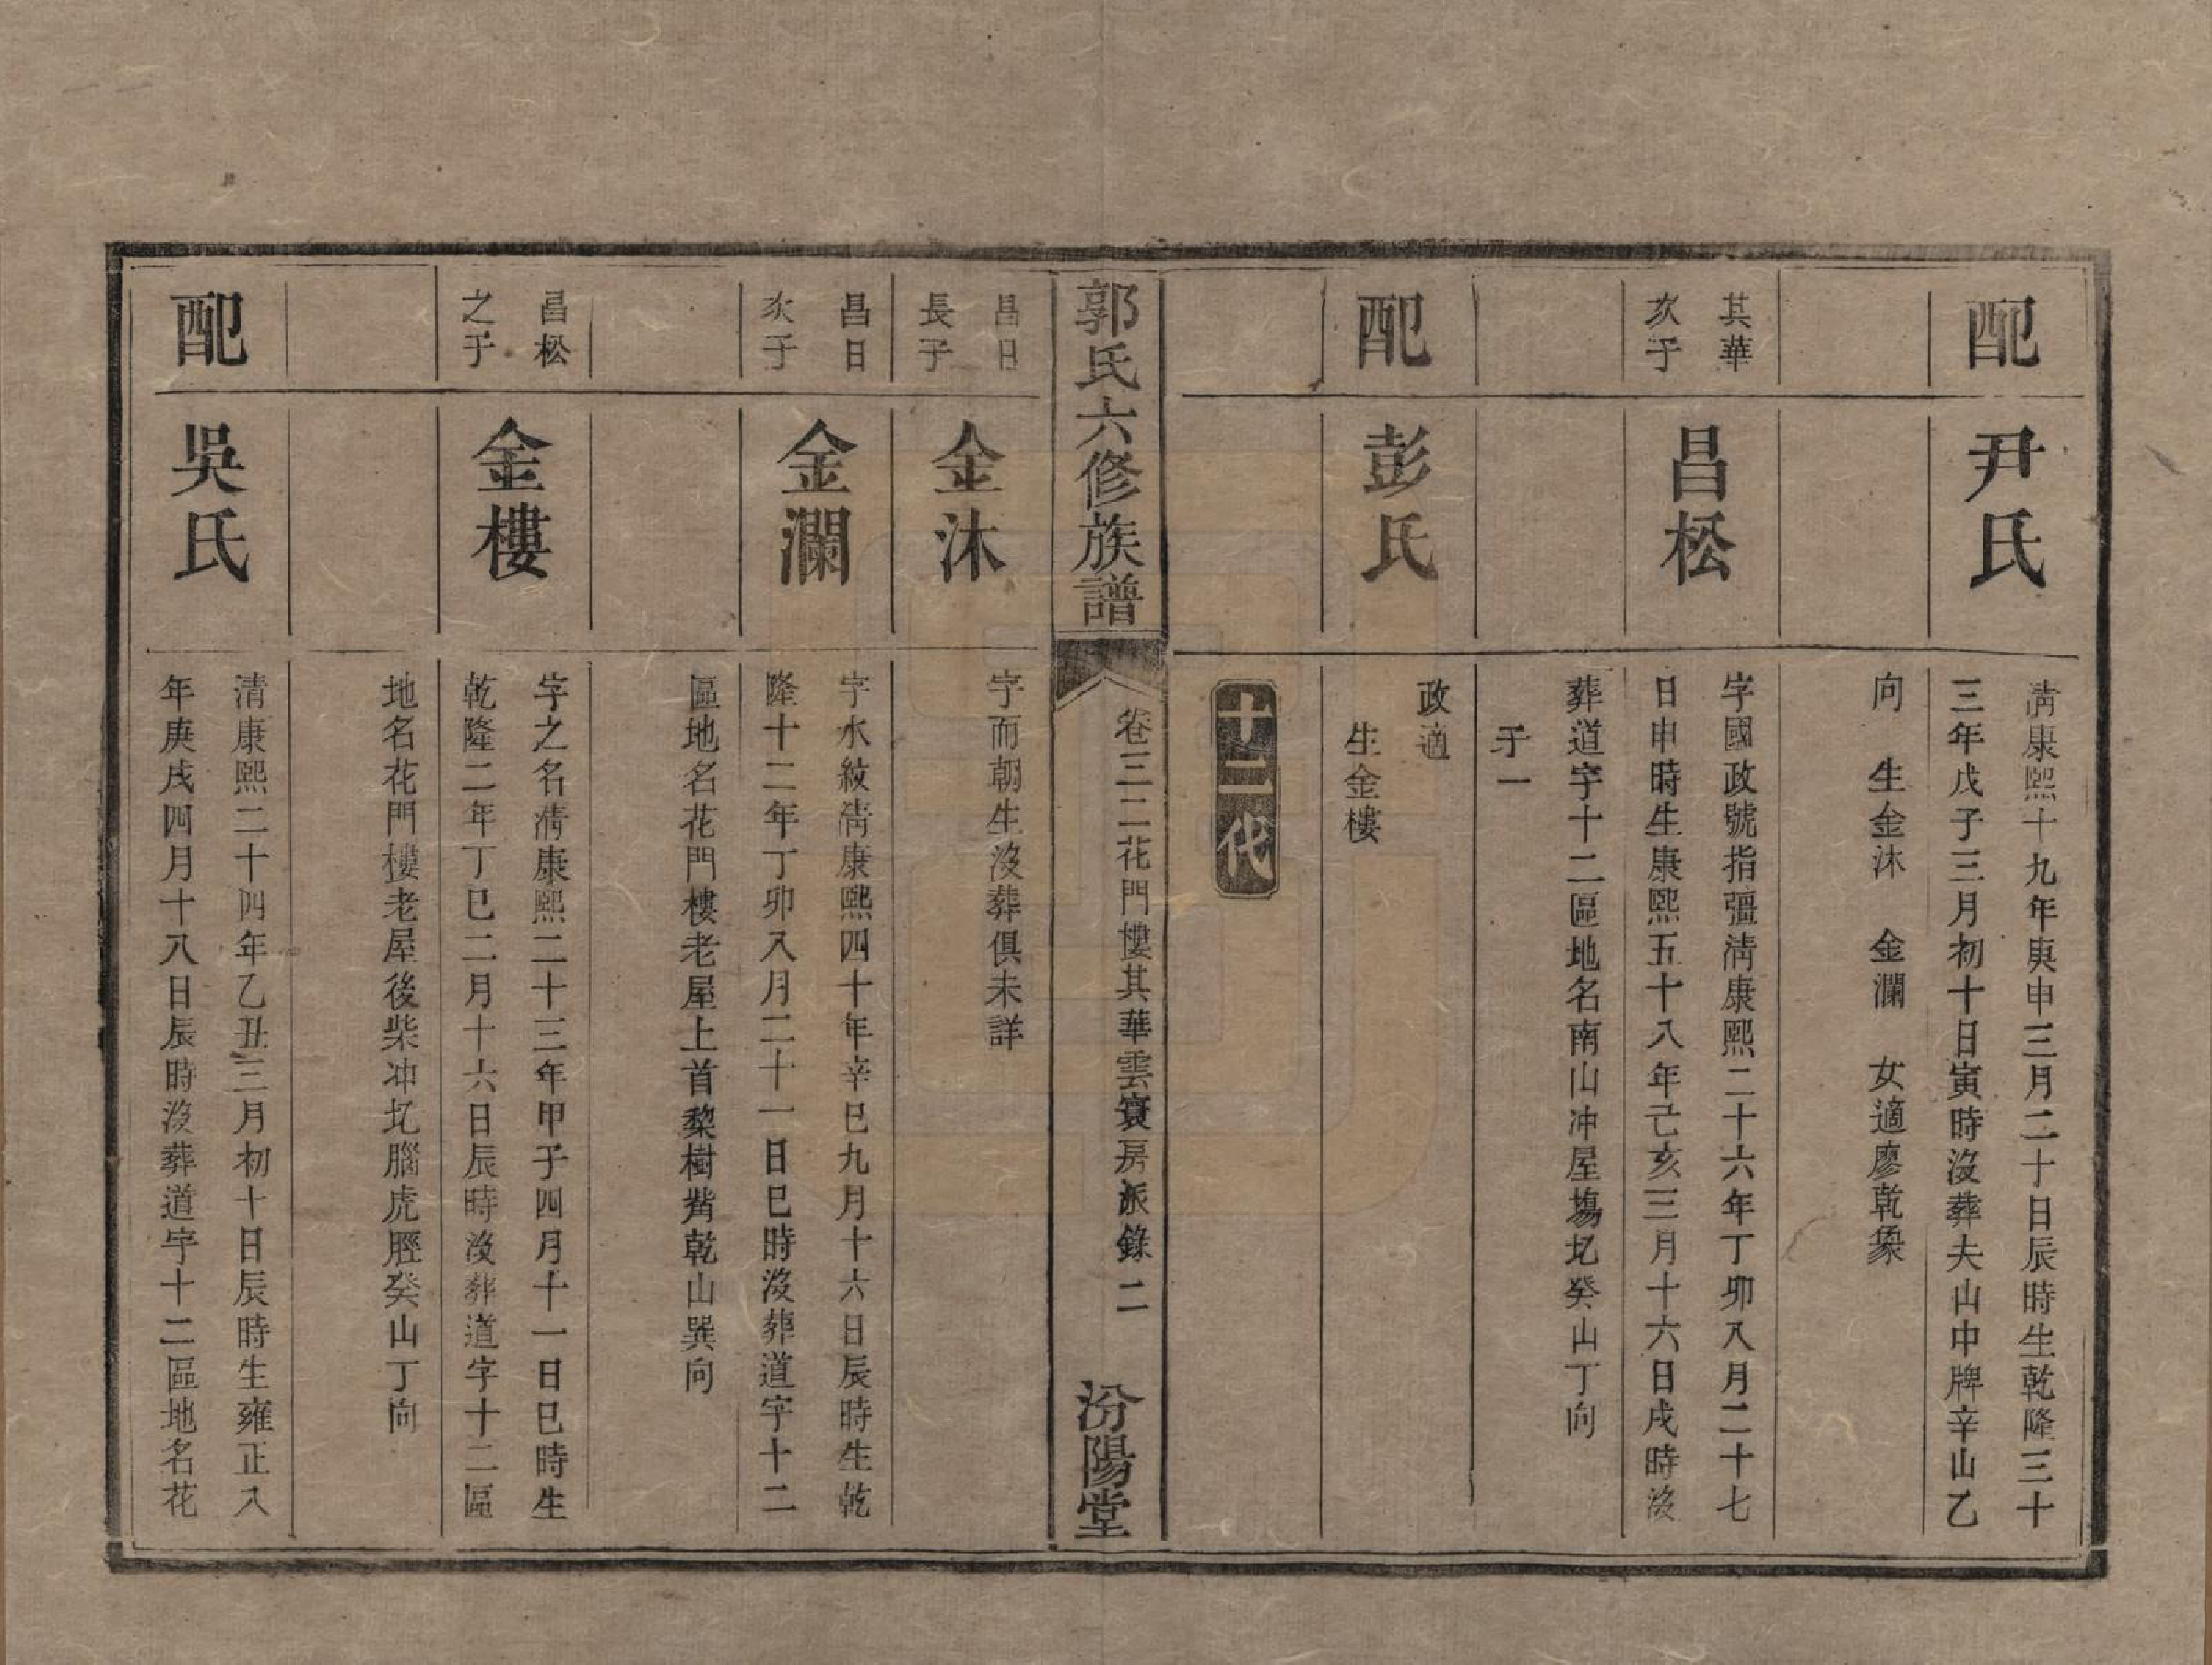 配
尹氏
清康熙十九年庚申三月二十日辰時生乾隆三十
三年戊子三月初十日寅時沒葬夫山中牌辛山乙
向　生金沐　金瀾　女適廖乾象
其華
次子
昌松
字國政號指彊清康熙二十六年丁卯八月二十七
日申時生康熙五十八年己亥三月十六日戌時沒
葬道字十二區地名南山冲屋塲圠癸山丁向
子一
配
彭氏
政適
生金樓
十二代
郭氏六修族譜
卷三二花門樓其華雲寰房派錄 二
汾陽堂
昌日
長子
金沐
字而朝生沒葬俱未詳
昌日
次子
金瀾
字水紋清康熙四十年辛巳九月十六日辰時生乾
隆十二年丁卯八月二十一日巳時沒葬道字十二
區地名花門樓老屋上首黎樹觜乾山巽向
昌松
之子
金樓
字之名清康熙二十三年甲子四月十一日巳時生
乾隆二年丁巳二月十六日辰時沒葬道字十二區
地名花門樓老屋後柴冲圠腦虎脛癸山丁向
配
吳氏
清康熙二十四年乙丑三月初十日辰時生雍正八
年庚戌四月十八日辰時沒葬道字十二區地名花